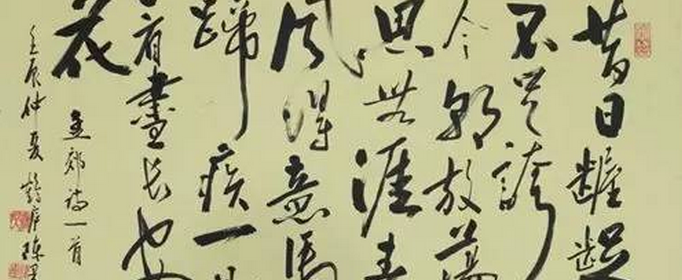 昔日齷齪
不足誇
今朝放蕩
思無涯春
風得意馬
蹄疾一日
看盡長安
花
孟郊詩一首
壬辰仲夏